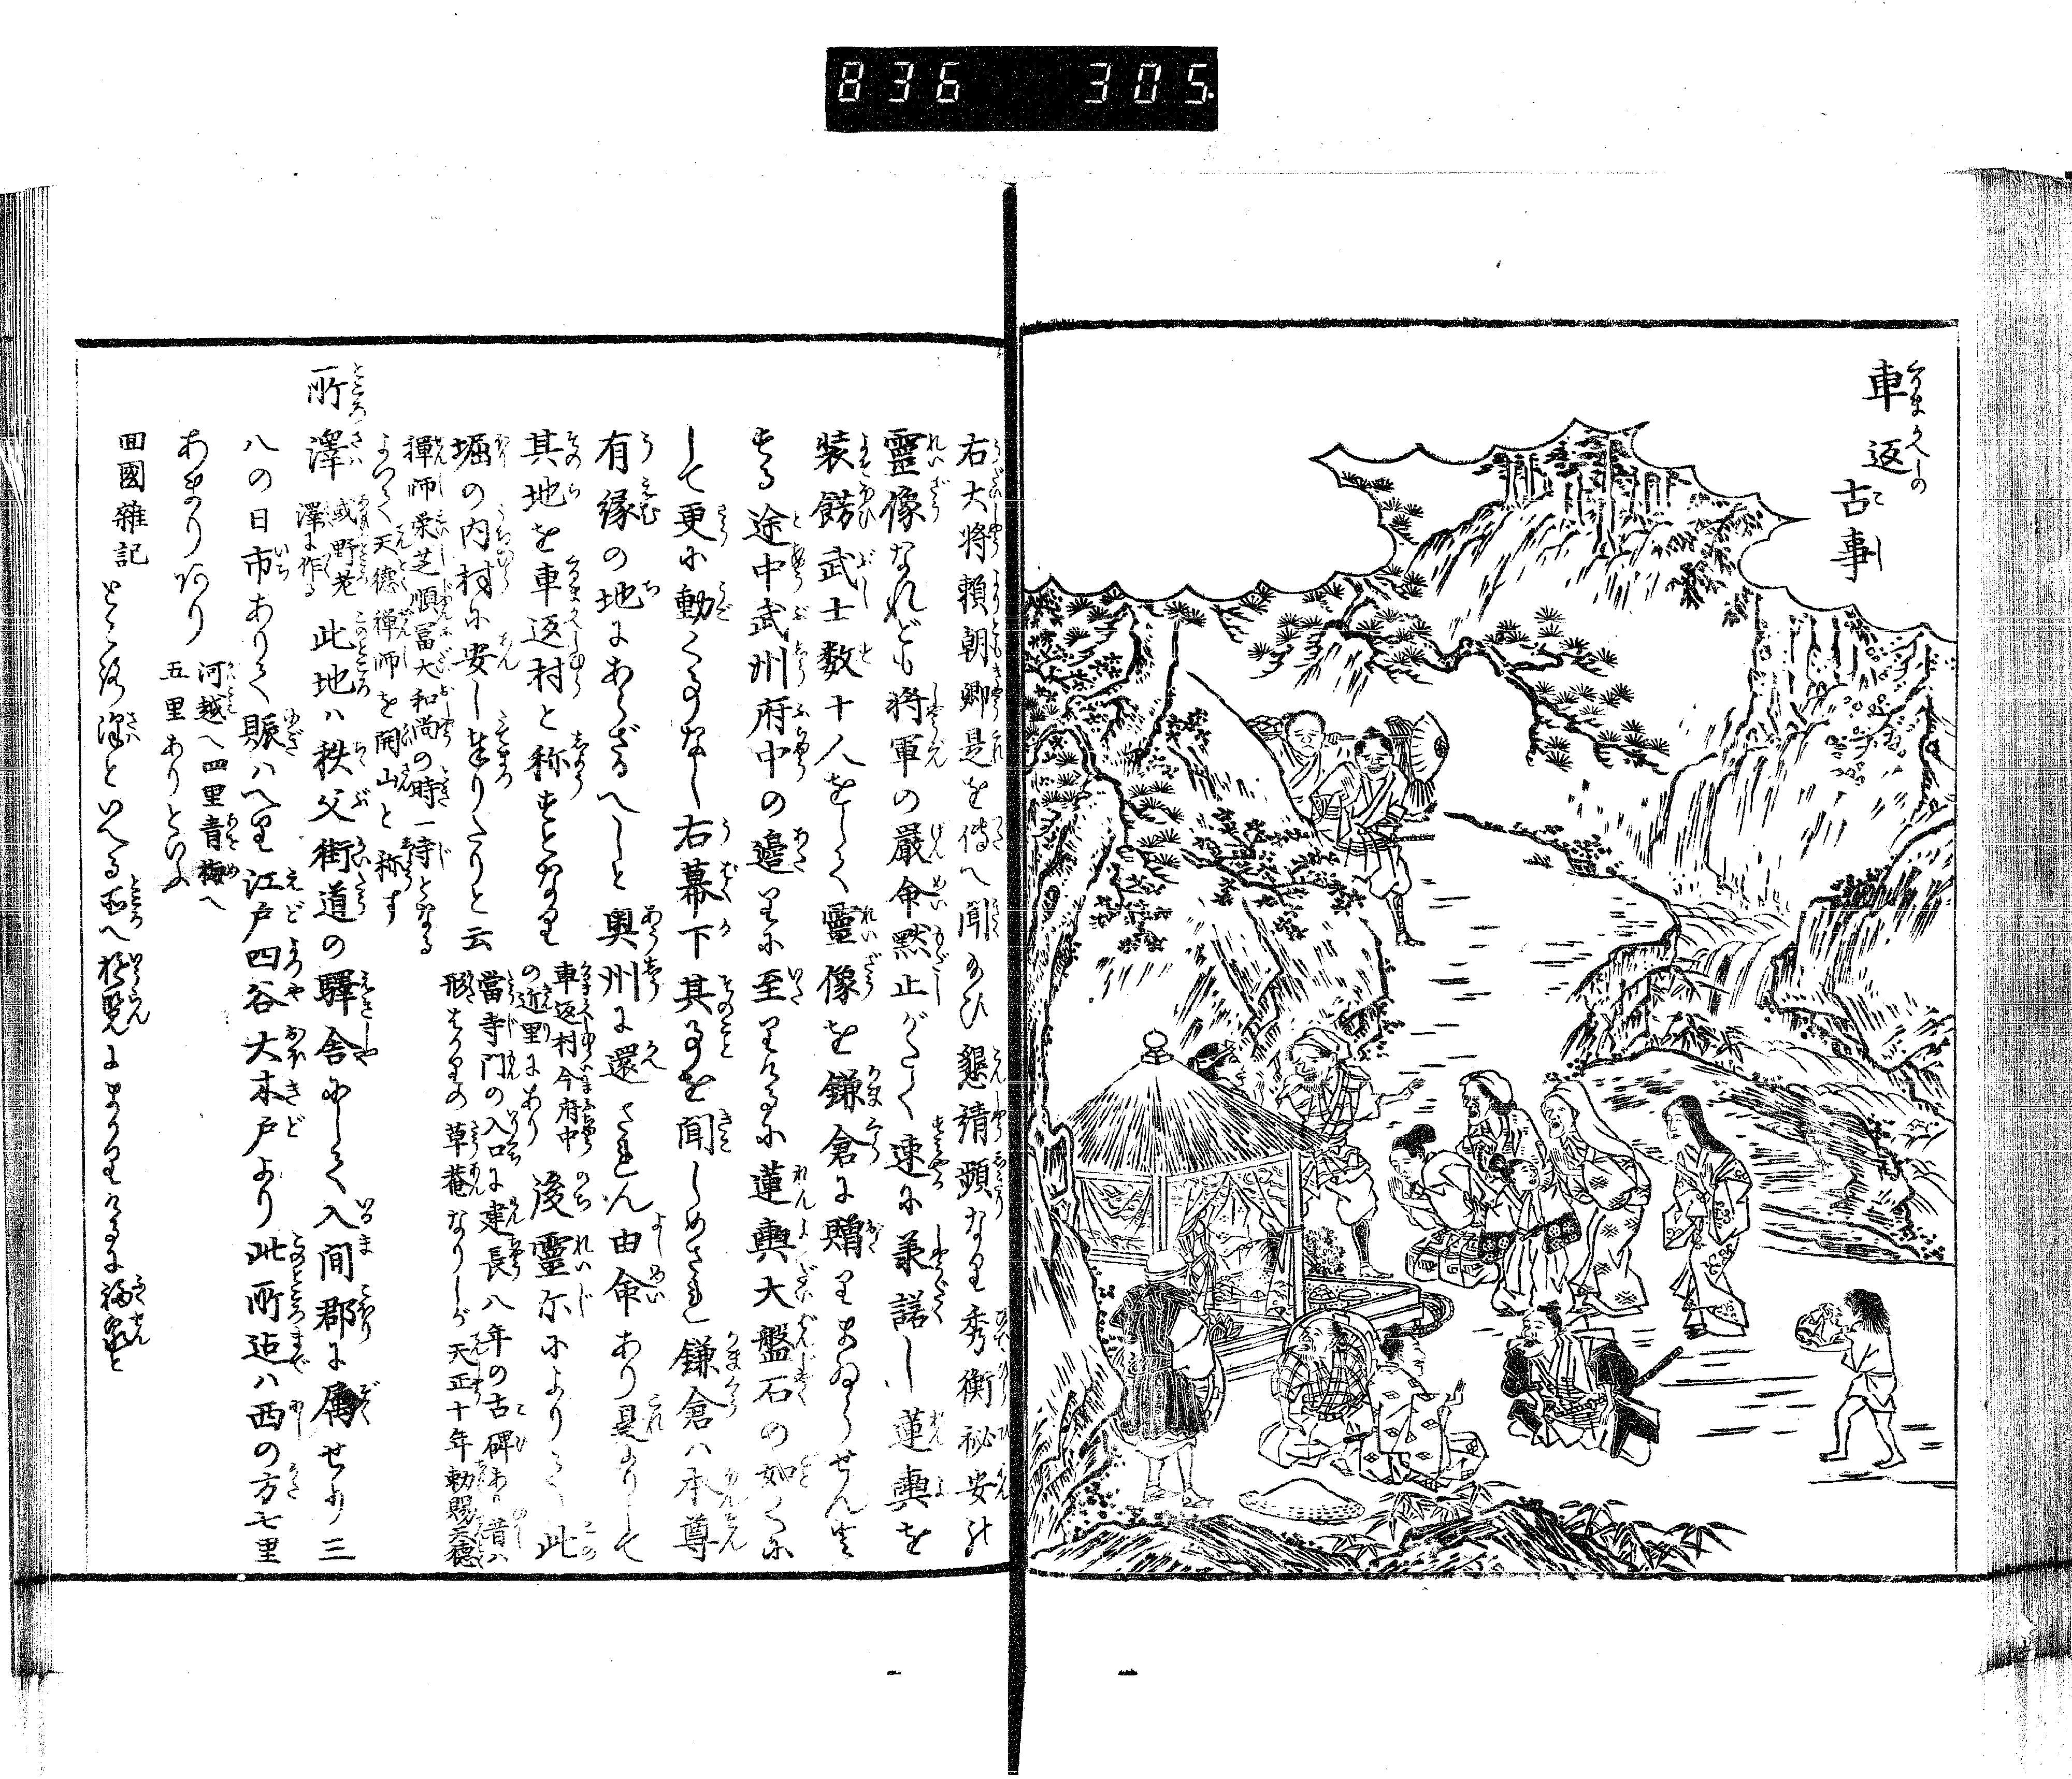 836 305
車返古事
右大將賴朝卿是を傳へ聞給ひ懇請頻なり秀衡祕安の
靈像なれども將軍の嚴命黙止がたく速に兼諾し蓮輿を
装餝武士数十人をして靈像を鎌倉に贈りまゐらせんとす
する途中武州府中の邉りに至りけるに蓮輿大盤石の如くに
して更に動く事なし右幕下其事を聞しめされ鎌倉ハ本尊
有縁の地にあらざるへしと奥州に還さしめられん由命あり是よりして
其地を車返村と称すとなり
車返村今府中
の近里にあり
後靈示によりて此
堀の内村に安しまゐりたりと云
當寺門の入口に建長八年の古碑あり昔ハ
形はかりの草菴なりしが天正十年勅賜天德
禪師栄芝順冨大和尚の時一寺となる
よつて天德禪師を開山と称す
所澤
或野老
澤に作る
此地ハ秩父街道の驛舎にして入間郡に属せり三
八の日市ありて賑ハへり江戸四谷大木戸より此所迠ハ西の方七里
あまりあり
河越へ四里青梅へ
五里ありといふ
回國雜記
ところ澤といへる所へ遊覧にまかりけるに福泉と